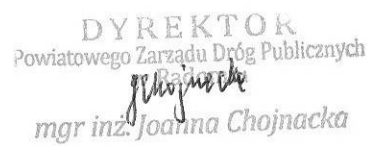 DYREKTOR
Powiatowego Zarządu Dróg Publicznych
mgr inż. Joanna Chojnacka